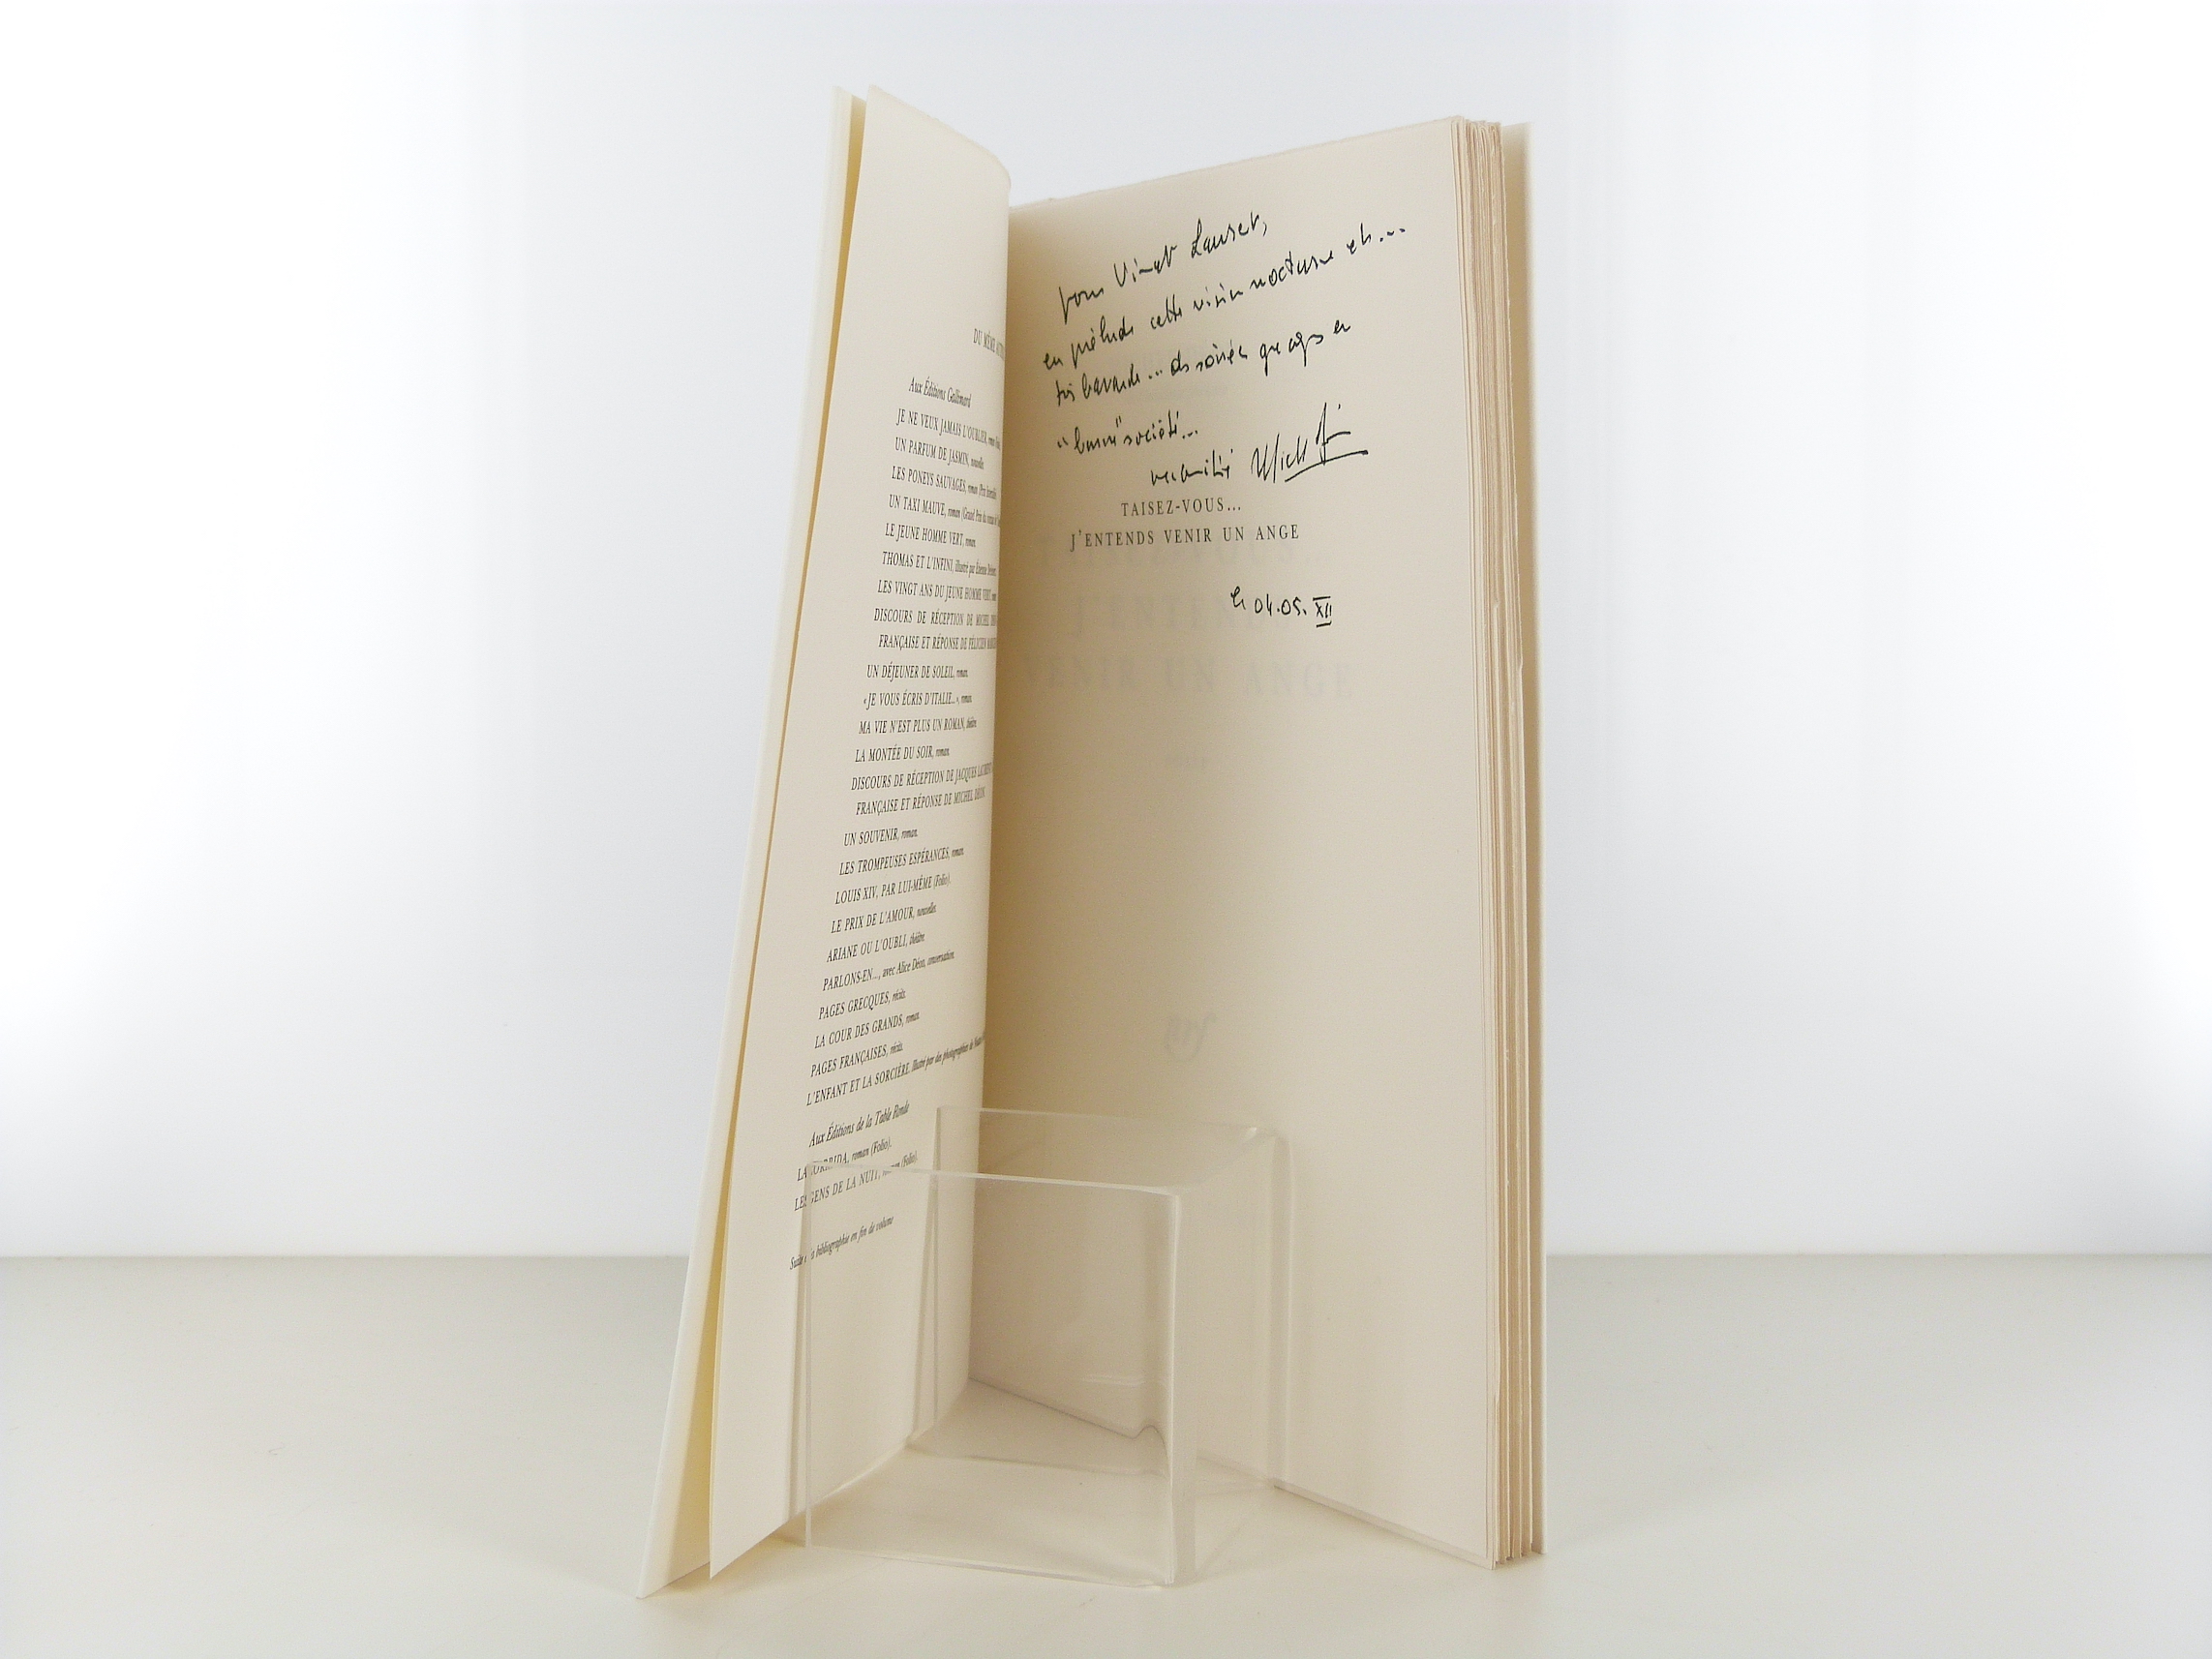 DU MÊME
Aux Éditions Gallimard
JE NE VEUX JAMAIS L'OUBLIER, roman
UN PARFUM DE JASMIN, nouvelles.
LES PONEYS SAUVAGES, roman (Prix Interallié
UN TAXI MAUVE, roman (Grand Prix du roman de l'
LE JEUNE HOMME VERT, roman.
THOMAS ET L'INFINI, illustré par Étienne Delessert.
LES VINGT ANS DU JEUNE HOMME VERT, roman
DISCOURS DE RÉCEPTION DE MICHEL
FRANÇAISE ET RÉPONSE DE FÉLICIEN
UN DÉJEUNER DE SOLEIL, roman.
«JE VOUS ÉCRIS D'ITALIE...», roman.
MA VIE N'EST PLUS UN ROMAN, théâtre.
LA MONTÉE DU SOIR, roman.
DISCOURS DE RÉCEPTION DE JACQUES LAURENT
FRANÇAISE ET RÉPONSE DE MICHEL DÉON.
UN SOUVENIR, roman.
LES TROMPEUSES ESPÉRANCES, roman.
LOUIS XIV, PAR LUI-MÊME (Folio).
LE PRIX DE L'AMOUR, nouvelles.
ARIANE OU L'OUBLI, théâtre.
PARLONS-EN..., avec Alice Déon, conversation.
PAGES GRECQUES, récits.
LA COUR DES GRANDS, roman.
PAGES FRANÇAISES, récits.
L'ENFANT ET LA SORCIÈRE. Illustré par des photographies de
Aux Éditions de la Table Ronde
LA CORRIDA, roman (Folio).
LES GENS DE LA NUIT, roman (Folio).
Suite de la bibliographie en fin de volume
pour Lauret,
en prélude cette vision nocturne et...
très bavarde... des soirées en
"bonne" société...
Michel Déon
TAISEZ-VOUS...
J'ENTENDS VENIR UN ANGE
le 04.05. XII